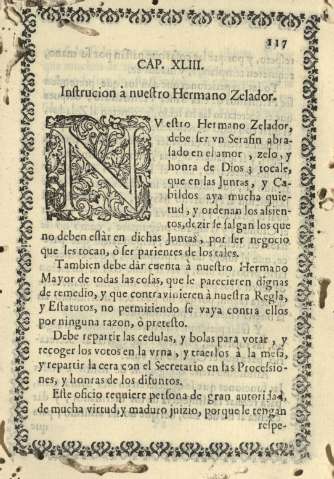 117
CAP. XLIII.
Instrucion à nuestro Hermano Zelador.
NVestro Hermano Zelador,
debe ser vn Serafin abra-
sado en el amor, zelo, y
honra de Dios; tocale,
que en las Juntas, y Ca-
bildos aya mucha quie-
tud, y ordenan los assien-
tos, dezir se salgan los que
no deben estàr en dichas Juntas, por ser negocio
que les tocan, ò ser parientes de los tales.
Tambien debe dàr cuenta à nuestro Hermano
Mayor de todas las cosas, que le parecieren dignas
de remedio, y que contravinieren à nuestra Regla,
y Estatutos, no permitiendo se vaya contra ellos
por ninguna razon, ò pretesto.
Debe repartir las cedulas, y bolas para votar, y
recoger los votos en la vrna, y traerlos à la mesa,
y repartir la cera con el Secretario en las Processio-
nes, y honras de los difuntos.
Este oficio requiere persona de gran autoridad,
de mucha virtud, y maduro juizio, porque le tengan
respe-